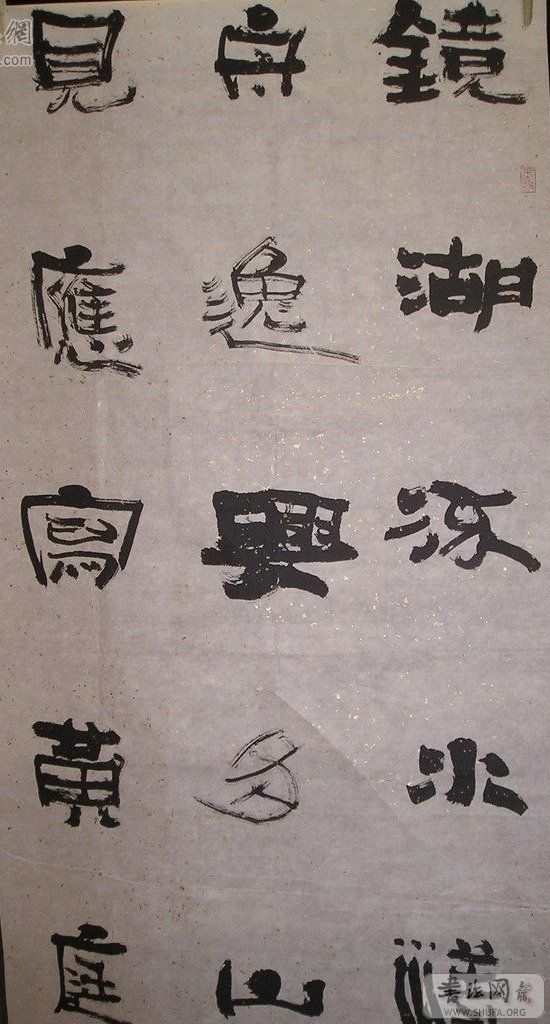 鏡湖流水漾
舟逸興多山
見應寫黃庭
網
.com
書法网
WWW.SHUFA.ORG